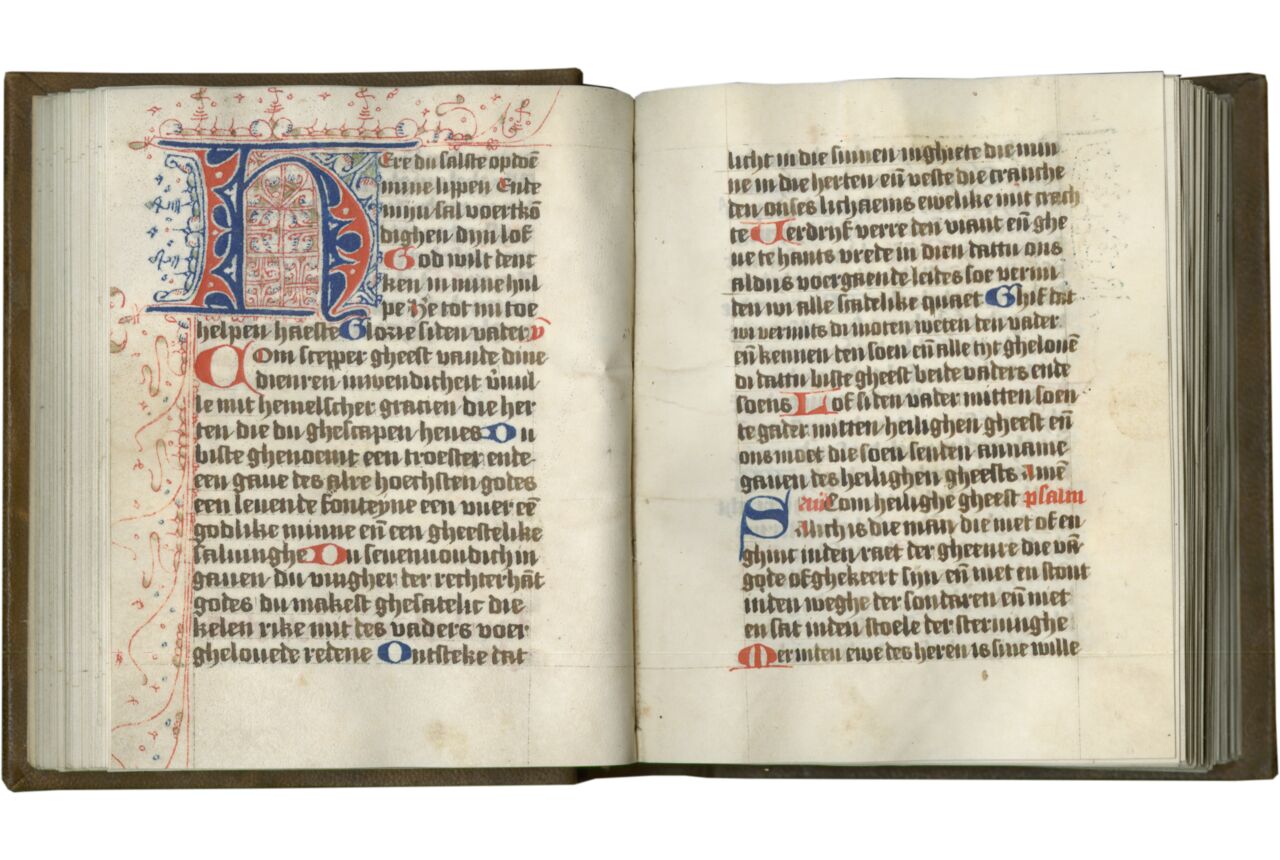 Here du salste opdoē
mine lippen Ende
mijn sal voertkō
dighen dijn lof
God wilt denc
ken in mine hul
pe He tot mi toe
helpen haeste Glorie si den vader
Com scepper gheest vande dine
dienren inwendicheit v̄vul
le mit hemelscher gracien die her
ten die du ghescapen heues Du
biste ghenoemt een troester ende
een gaue des alre hoechsten godes
een leuende fonteyne een vuer eē
godlike minne eñ een gheestelike
saluinghe Du seuenuoudich in
gauen du vingher der rechterhāt
godes du makest ghesatelic die
kelen rike mit des vaders voer
ghelouede redene Ontsteke dat
licht in die sinnen inghiete die min
ne in die herten eñ veste die crancke
den onses lichaems ewelike mit crech
te Verdrijf verre den viant eñ ghe
ue te hants vrede in dien dattu ons
aldus voergaende leides soe vermi
den wi alle scadelike quaet Ghif dat
wi vermits di moten weten den vader
eñ kennen den soen eñ alle tyt ghelouē
di dattu biste gheest beide vaders ende
soens Lof si den vader mitten soen
te gader mitten heilighen gheest eñ
ons moet die soen senden anname
gauen des heilighen gheests Amē
Com heilighe gheest psalm
Salich is die man die niet of en
ghinc inden raet der gheenre die vā
gode of ghekeert sijn eñ niet en stont
inden weghe der sondaren eñ niet
en sat inden stoele der steruinghe
Mer inden ewe des heren is sine wille